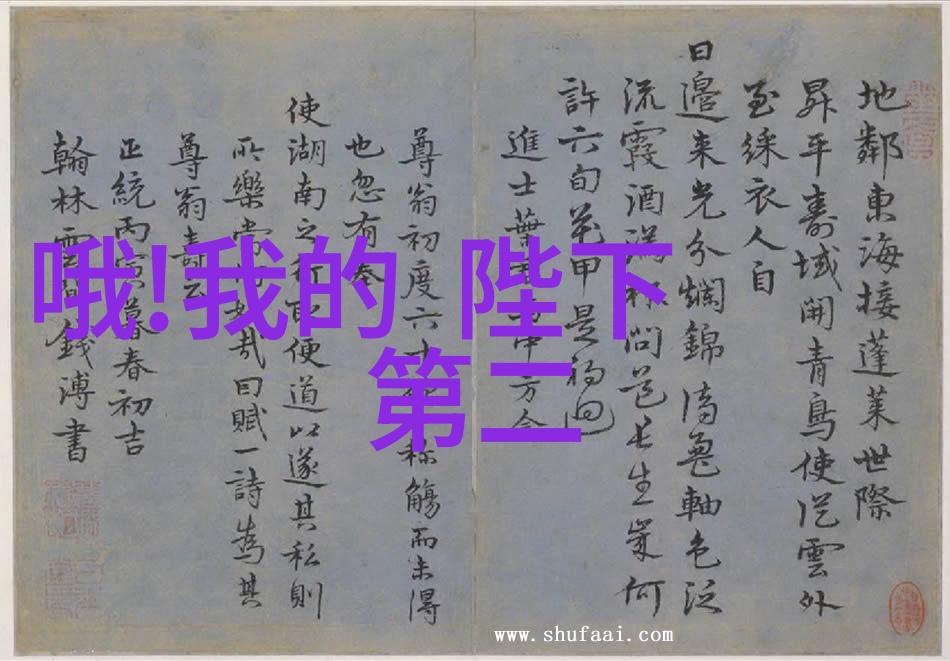 地鄰東海接蓬萊世際
昇平壽域開青鳥使從雲外
至綵衣人自
日邊來光分爛錦濤鳧軸色泛
流霞酒滿杯問道長生策何
許六旬花甲是初回
進士葉中方今
尊翁初度六十稱觴而未得
也忽有奉
使湖南之行取便道以遂其私則
所樂當何如哉因賦一詩為其
尊翁壽云
正統丙寅暮春初吉
翰林錢溥書
哦!我的 陛下
第二
www.shufaai.com